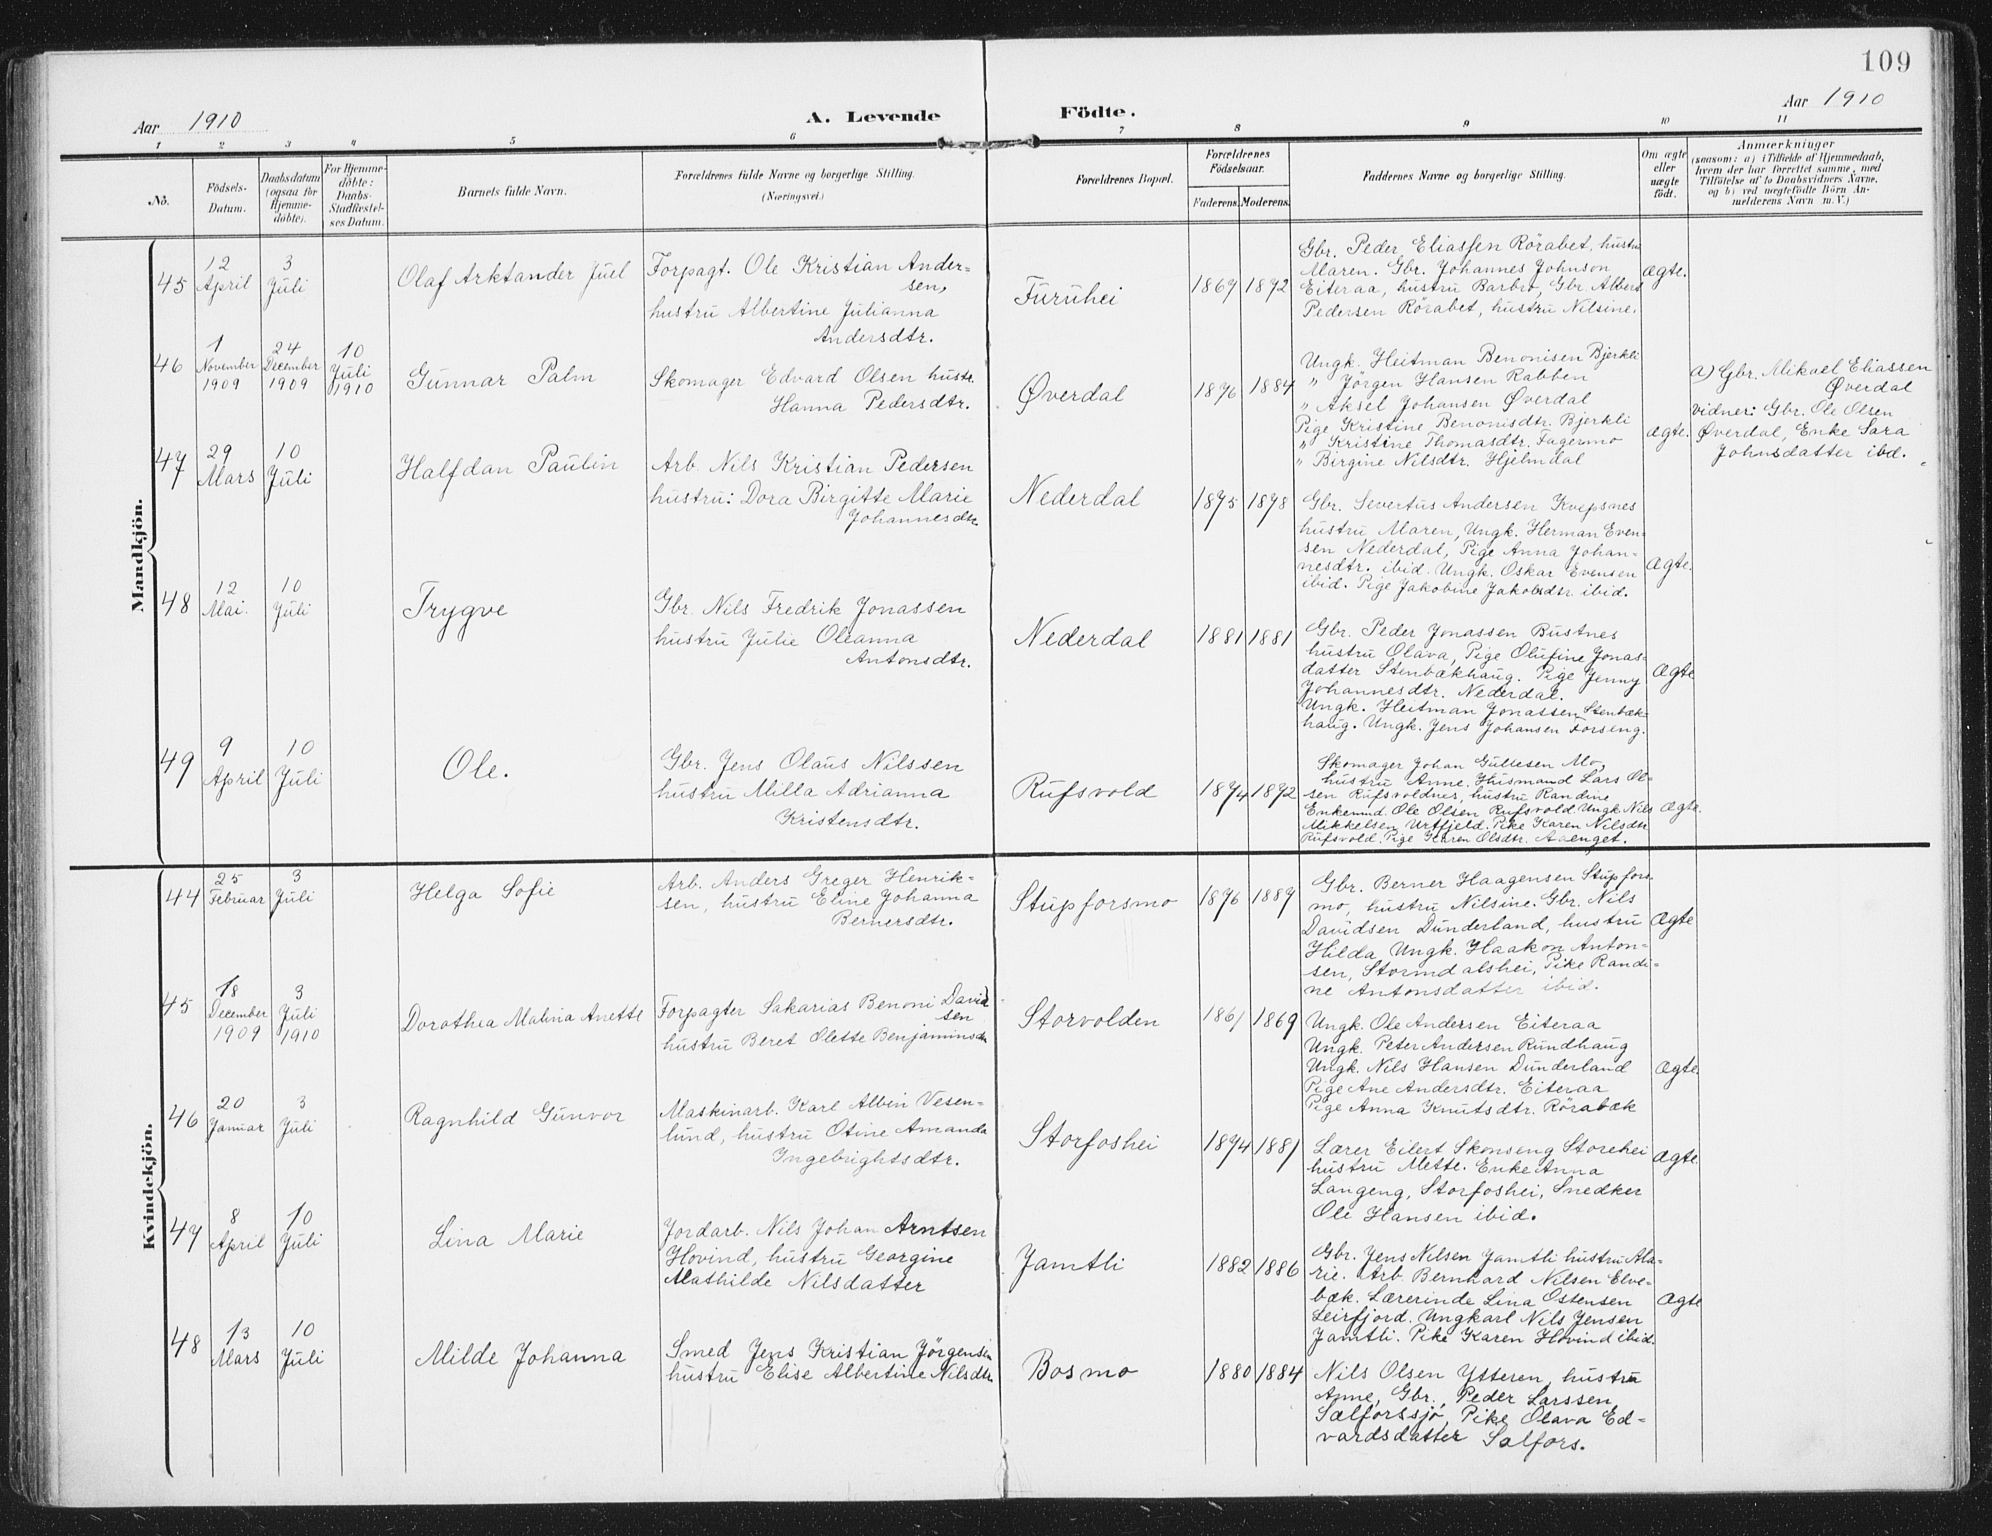 109
Aar 1910
A. Levende Födte.
Aar 1910
1 2 3 4 5 6 7 8 9 10 11
No.
Födsels-
Datum.
Daabsdatum
(ogsaa for
Hjemme-
döbte).
For Hjemme-
döbte:
Daabs-
Stadfæstel-
ses Datum.
Barnets fulde Navn.
Forældrenes fulde Navne og borgerlige Stilling.
(Næringsvei.)
Forældrenes Bopæl.
Forældrenes
Födselsaar.
Faderens. Moderens.
Faddernes Navne og borgerlige Stilling.
Om ægte
eller
uægte
födt.
Anmærkninger
(saasom: a) i Tilfælde af Hjemmedaab,
hvem der har forrettet samme, med
Tilföielse af to Daabsvidners Navne,
og b) ved uægtefödte Börn An-
melderens Navn m. V.)
Mandkjön.
45
12
April
3
Juli
Olaf Arktander Juel
Forpagt. Ole Kristian Ander-
sen,
hustru Albertine Julianna
Andersdtr.
Furuhei
1869 1872
Gbr. Peder Eliassen Rörabet, hustru
Maren. Gbr. Johannes Johnson
Eiteraa, hustru Barbro, Gbr. Albert
Pedersen Rörabet, hustru Nilsine.
Ægte.
46
1
November
1909
24
December
1909
10
Juli
1910
Gunnar Palm
Skomager Edvard Olsen hustr.
Hanna Pedersdtr.
Øverdal
1876 1884
Ungk. Heitman Benonisen Bjerkli
" Jörgen Hansen Rabben
" Aksel Johansen Øverdal
Pige Kristine Benonisdtr. Bjerkli
" Kristine Thomasdtr. Fagermo
" Birgine Nilsdtr. Hjelmdal
Ægte.
a) Gbr. Mikael Eliassen
Øverdal
Vidner: Gbr. Ole Olsen
Øverdal, Enke Sara
Johnsdatter ibd.
47
29
Mars
10
Juli
Halfdan Paulin
Arb. Nils Kristian Pedersen
hustru: Dora Birgitte Marie
Johannesdtr
Nederdal
1875 1878
Gbr. Severtus Andersen Kvepsnes
hustru Maren, Ungk. Herman Even-
sen Nederdal, Pige Anna Johan-
nesdtr. ibid. Ungk. Oskar Evensen
ibid. Pige Jakobine Jakobsdtr ibid.
Ægte.
48
12
Mai.
10
Juli
Trygve
Gbr. Nils Fredrik Jonassen
hustru Julie Oleanna
Antonsdtr.
Nederdal
1881 1881
Gbr. Peder Jonassen Bustnes
hustru Olava, Pige Olufine Jonas-
datter Stenbækhaug. Pige Jenny
Johannesdtr. Nederdal.
Ungk. Heitman Jonassen Stenbæk-
haug. Ungk. Jens Johansen Forseng.
Ægte
49
9
April
10
Juli
Ole.
Gbr. Jens Olaus Nilssen
hustru Milla Adrianna
Kristensdtr.
Rufsvold
1874 1872
Skomager Johan Gullesen Mo,
hustru Anne. Husmand Lars Ol-
sen Rufsvoldnes, hustru Randine
Enkemd. Ole Olsen Rufsvold. Ungk. Nils
Mikkelsen Urtfjeld. Pike Karen Nilsdtr
Rufsvold. Pige Karen Olsdtr. Aaenget.
Ægte.
Kvindekjön.
44
25
Februar
3
Juli
Helga Sofie
Arb. Anders Greger Henrik-
sen, hustru Eline Johanna
Bernersdtr.
Stupforsmo
1876 1889
Gbr. Berner Haagensen Stupfors-
mo, hustru Nilsine. Gbr. Nils
Davidsen Dunderland, hustru
Hilda, Ungk. Haakon Anton-
sen, Stormdalshei, Pike Randi-
ne Antonsdatter ibid.
Ægte
45
18
December
1909
3
Juli
1910
Dorothea Malina Anette
Forpagter Sakarias Benoni David
sen
hustru Beret Olette Benjaminsdtr
Storvolden
1861 1869
Ungk. Ole Andersen Eiteraa
Ungk. Peter Andersen Rundhaug
Ungk. Nils Hansen Dunderland
Pige Ane Andersdtr. Eiteraa
Pige Anna Knutsdtr. Rörabæk
Ægte.
46
20
Januar
3
Juli
Ragnhild Gunvor
Maskinarb. Karl Albin Vesen-
lund, hustru Otine Amanda
Ingebrightsdtr.
Storfoshei
1874 1881
Lærer Eilert Skonseng Storehei
hustru Mette. Enke Anna
Langeng, Storfoshei, Snedker
Ole Hansen ibid.
Ægte
47
8
April
10
Juli
Lina Marie
Jordarb. Nils Johan Arntsen
Hovind, hustru Georgine
Mathilde Nilsdatter
Jamtli
1882 1886
Gbr. Jens Nilsen Jamtli hustru Ma-
rie. Arb. Bernhard Nilsen Elve-
bæk. Lærerinde Lina Ostensen
Leirfjord. Ungkarl Nils Jensen
Jamtli. Pike Karen Hovind ibid.
Ægte
48
13
Mars
10
Juli
Milde Johanna
Smed Jens Kristian Jörgensen
hustru Elise Albertine Nilsdtr.
Bosmo
1880 1884
Nils Olsen Ytteren, hustru
Anne, Gbr. Peder Larssen
Salforssjø, Pike Olava Ed-
vardsdatter Salfors.